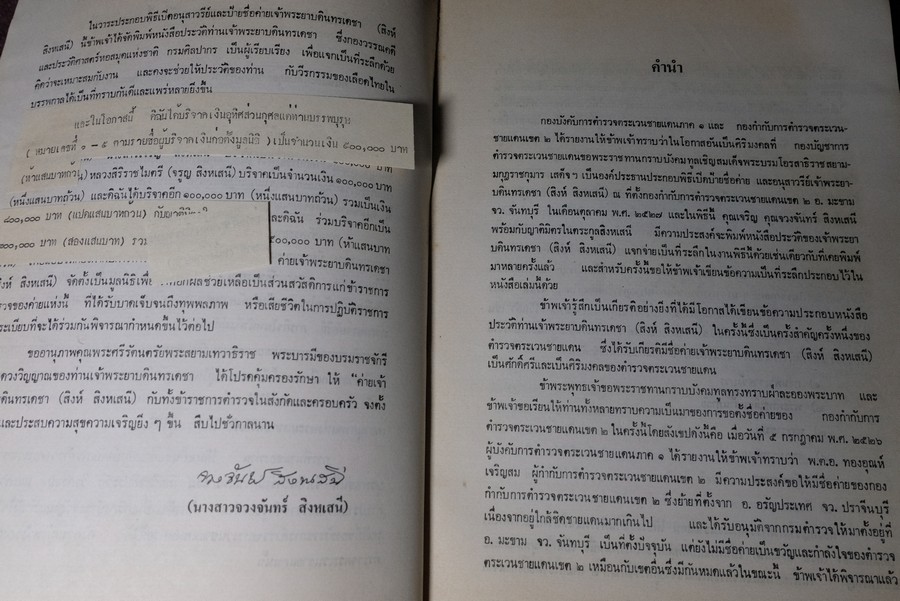 ในวาระประกอบพิธีเปิดอนุสาวรีย์และป้ายชื่อค่ายเจ้าพระยาบดินทรเดชา (สิงห์
สิงหเสนี) นี้ข้าพเจ้าได้จัดพิมพ์หนังสือประวัติท่านเจ้าพระยาบดินทรเดชา ซึ่งกองวรรณคดี
และประวัติศาสตร์หอสมุดแห่งชาติ กรมศิลปากร เป็นผู้เรียบเรียง เพื่อแจกเป็นที่ระลึกด้วย
คิดว่าจะเหมาะสมกับงาน และคงจะช่วยให้ประวัติของท่าน กับวีรกรรมของเลือดไทยใน
บรรพกาลได้เป็นที่ทราบกันดีและแพร่หลายยิ่งขึ้น
และในโอกาสนี้ ดิฉันได้บริจาคเงินอุทิศส่วนกุศลแด่ท่านบรรพบุรุษ
( หมายเลขที่ ๑ - ๕ ตามรายชื่อผู้บริจาคเงินก่อตั้งมูลนิธิ ) เป็นจำนวนเงิน ๕๐๐,๐๐๐ บาท
(ห้าแสนบาทถ้วน) หลวงสิริราชไมตรี (จรูญ สิงหเสนี) บริจาคเป็นจำนวนเงิน ๑๐๐,๐๐๐ บาท
(หนึ่งแสนบาทถ้วน) และดิฉันได้บริจาคอีก ๑๐๐,๐๐๐ บาท (หนึ่งแสนบาทถ้วน) รวมเป็นเงิน
๘๐๐,๐๐๐ บาท (แปดแสนบาทถ้วน) กับญาติมิตร
ละดิฉัน ร่วมบริจาคอีกเป็น
๐๐,๐๐๐ บาท (สองแสนบาท) รวม
๐๐,๐๐๐ บาท (ห้าแสนบาท
ค่ายเจ้าพระยาบดินทรเดชา
สิงห์ สิงหเสนี) จัดตั้งเป็นมูลนิธิเพื่อ ดอกผลช่วยเหลือเป็นส่วนสวัสดิการแก่ข้าราชการ
ตำรวจของค่ายแห่งนี้ ที่ได้รับบาดเจ็บจนถึงทุพพลภาพ หรือเสียชีวิตในการปฏิบัติราชการ
ระเบียบที่จะได้ร่วมกันพิจารณากำหนดขึ้นไว้ต่อไป
ขออานุภาพคุณพระศรีรัตนตรัยพระสยามเทวาธิราช พระบารมีของบรมราชจักรี
ดวงวิญญาณของท่านเจ้าพระยาบดินทรเดชา ได้โปรดคุ้มครองรักษา ให้ “ค่ายเจ้า
ดินทรเดชา (สิงห์ สิงหเสนี) กับทั้งข้าราชการตำรวจในสังกัดและครอบครัว จงตั้ง
และประสบความสุขความเจริญยิ่ง ๆ ขึ้น สืบไปชั่วกาลนาน
จวงจันทร์ สิงหเสนี
(นางสาวจวงจันทร์ สิงหเสนี)
คำนำ
กองบังคับการตำรวจตระเวนชายแดนภาค ๑ และ กองกำกับการตำรวจตระเวน-
ชายแดนเขต ๒ ได้รายงานให้ข้าพเจ้าทราบว่าในโอกาสอันเป็นศิริมงคลที่ กองบัญชาการ
ตำรวจตระเวนชายแดนขอพระราชทานกราบบังคมทูลเชิญสมเด็จพระบรมโอรสาธิราชสยาม-
มกุฎราชกุมาร เสด็จ ฯ เป็นองค์ประธานประกอบพิธีเปิดป้ายชื่อค่าย และอนุสาวรีย์เจ้าพระยา-
บดินทรเดชา (สิงห์ สิงหเสนี) ณ ที่ตั้งกองกำกับการตำรวจตระเวนชายแดนเขต ๒ อ. มะขาม
จว. จันทบุรี ในเดือนตุลาคม พ.ศ. ๒๕๒๗ และในพิธีนี้ คุณเจริญ คุณจวงจันทร์ สิงหเสนี
พร้อมกับญาติมิตรในตระกูลสิงหเสนี มีความประสงค์จะพิมพ์หนังสือประวัติของเจ้าพระยา-
บดินทรเดชา (สิงห์ สิงหเสนี) แจกจ่ายเป็นที่ระลึกในงานพิธีนี้ด้วยเช่นเดียวกับที่เคยพิมพ์
มาหลายครั้งแล้ว และสำหรับครั้งนี้ขอให้ข้าพเจ้าเขียนข้อความเป็นที่ระลึกประกอบไว้ใน
หนังสือเล่มนี้ด้วย
ข้าพเจ้ารู้สึกเป็นเกียรติอย่างยิ่งที่ได้มีโอกาสได้เขียนข้อความประกอบหนังสือ
ประวัติท่านเจ้าพระยาบดินทรเดชา (สิงห์ สิงหเสนี) ในครั้งนี้ซึ่งเป็นครั้งสำคัญครั้งหนึ่งของ
ตำรวจตระเวนชายแดน ซึ่งได้รับเกียรติมีชื่อค่ายเจ้าพระยาบดินทรเดชา (สิงห์ สิงหเสนี)
เป็นศักดิ์ศรีและเป็นศิริมงคลของตำรวจตระเวนชายแดน
ข้าพระพุทธเจ้าขอพระราชทานกราบบังคมทูลทรงทราบฝ่าละอองพระบาท และ
ข้าพเจ้าขอเรียนให้ท่านทั้งหลายทราบความเป็นมาของการขอตั้งชื่อค่ายของ กองกำกับการ
ตำรวจตระเวนชายแดนเขต ๒ ในครั้งนี้โดยสังเขปดังนี้คือ เมื่อวันที่ ๕ กรกฎาคม พ.ศ. ๒๕๒๖
ผู้บังคับการตำรวจตระเวนชายแดนภาค ๑ ได้รายงานให้ข้าพเจ้าทราบว่า พ.ต.อ. ทองอุณห์
เจริญสม ผู้กำกับการตำรวจตระเวนชายแดนเขต ๒ มีความประสงค์ขอให้มีชื่อค่ายของกอง
กำกับการตำรวจตระเวนชายแดนเขต ๒ ซึ่งย้ายที่ตั้งจาก อ. อรัญประเทศ จว. ปราจีนบุรี
เนื่องจากอยู่ใกล้ชิดชายแดนมากเกินไป และได้รับอนุมัติจากกรมตำรวจให้มาตั้งอยู่ที่
อ. มะขาม จว. จันทบุรี เป็นที่ตั้งปัจจุบัน แต่ยังไม่มีชื่อค่ายเป็นขวัญและกำลังใจของตำรวจ
ตระเวนชายแดนเขต ๒ เหมือนกับเขตอื่นซึ่งมีกันหมดแล้วในขณะนี้ ข้าพเจ้าได้พิจารณาแล้ว